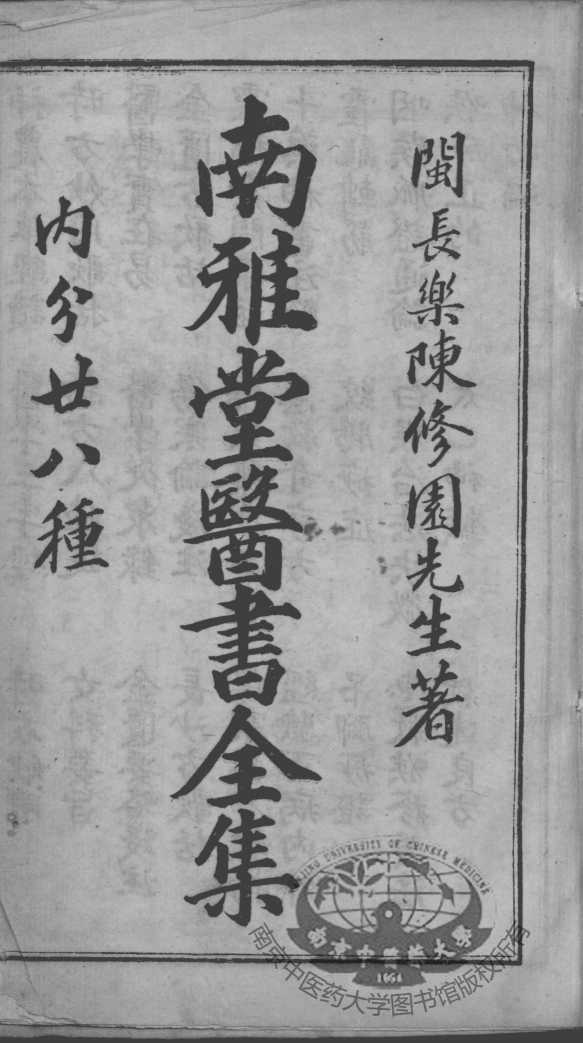 閩長樂陳修園先生著
南雅堂醫書全集
内分廿八種
NANJING UNIVERSITY OF CHINESE MEDICINE
南京中醫藥大學
1954
南京中医药大学图书馆版权所有